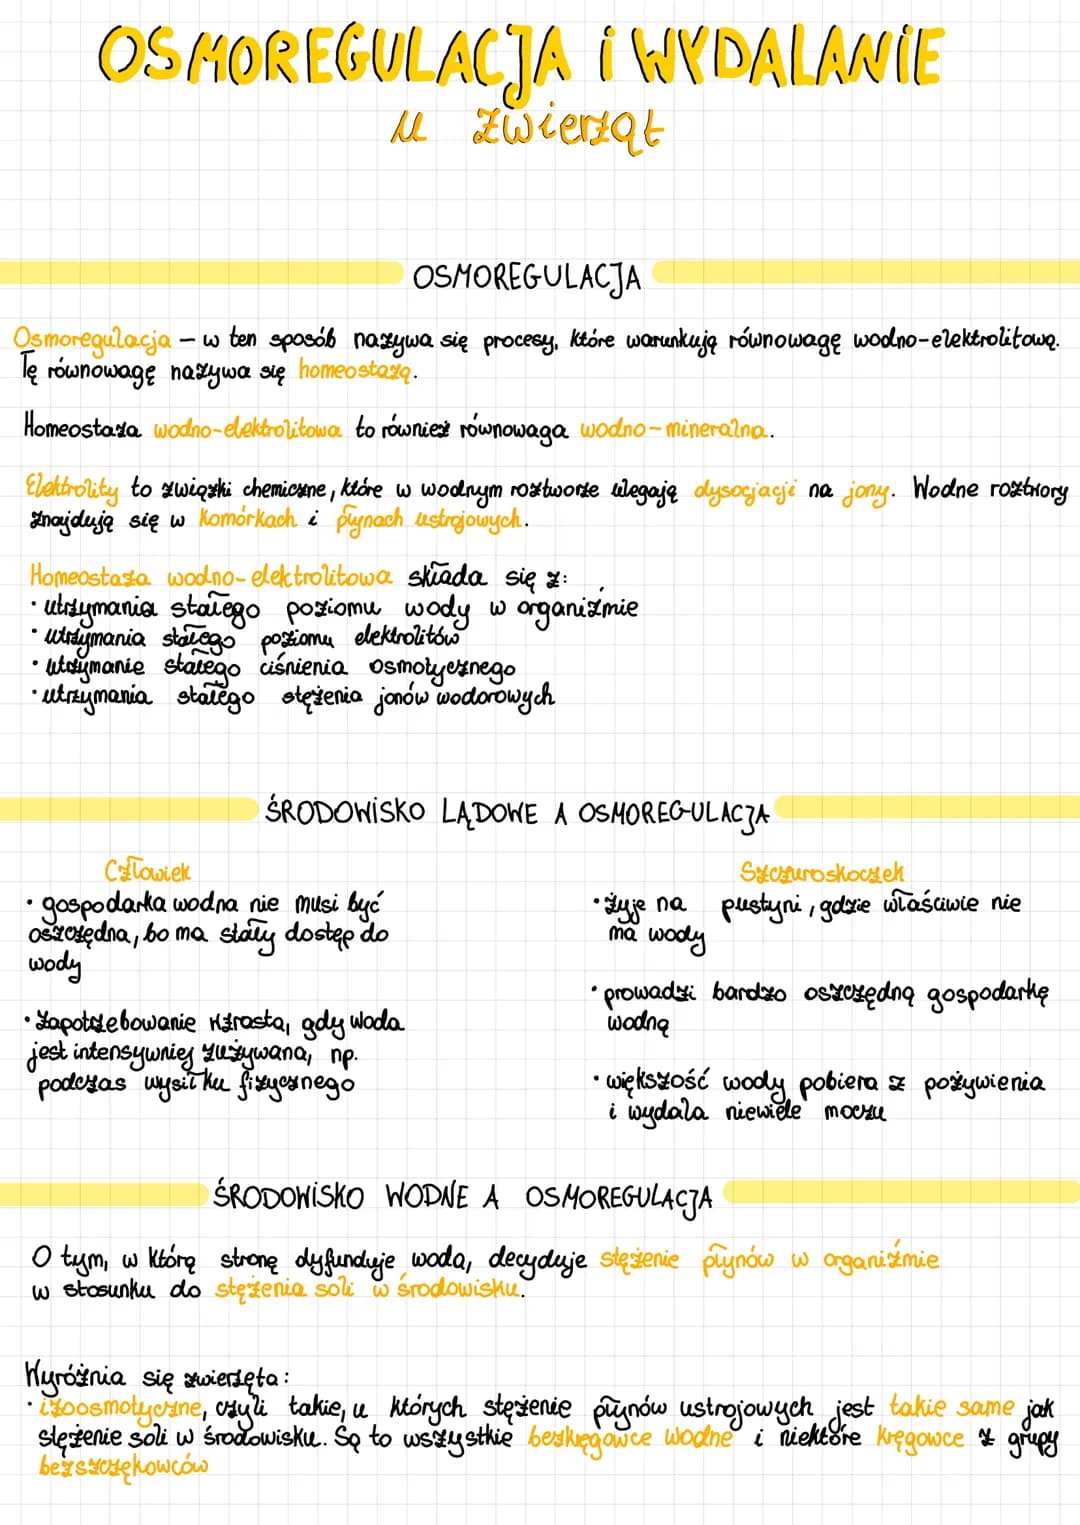 OSMOREGULACJA i WYDALANIE
u zwierząt
OSMOREGULACJA
Osmoregulacja – w ten sposób nazywa się procesy, które warunkują równowagę wodno-elektrolitową.
Tę równowagę nazywa się homeostazą.
Homeostaza wodno-elektrolitowa to również równowaga wodno-mineralna.
Elektrolity to związki chemiczne, które w wodnym roztworze ulegają dysocjacji na jony. Wodne roztwory
znajdują się w komórkach i płynach ustrojowych.
Homeostaza wodno-elektrolitowa składa się z:
• utrzymania stałego poziomu wody w organizmie
• utrzymania stałego poziomu elektrolitów
• utrzymanie stałego ciśnienia osmotycznego
• utrzymania stałego stężenia jonów wodorowych
ŚRODOWISKO LĄDOWE A OSMOREGULACJA
Człowiek
• gospodarka wodna nie musi być
oszczędna, bo ma stały dostęp do
wody
• Zapotrzebowanie wzrasta, gdy woda
jest intensywniej zużywana, np.
podczas wysiłku fizycznego
Szczuroskoczek
• żyje na pustyni, gdzie właściwie nie
ma wody
• prowadzi bardzo oszczędną gospodarkę
wodną
• większość wody pobiera z pożywienia
i wydala niewiele moczu
ŚRODOWISKO WODNE A OSMOREGULACJA
O tym, w którą stronę dyfunduje woda, decyduje stężenie płynów w organizmie
w stosunku do stężenia soli w środowisku.
Wyróżnia się zwierzęta:
• izoosmotyczne, czyli takie, u których stężenie płynów ustrojowych jest takie same jak
stężenie soli w środowisku. Są to wszystkie bezkręgowce wodne i niektóre kręgowce z grupy
bezszczękowców